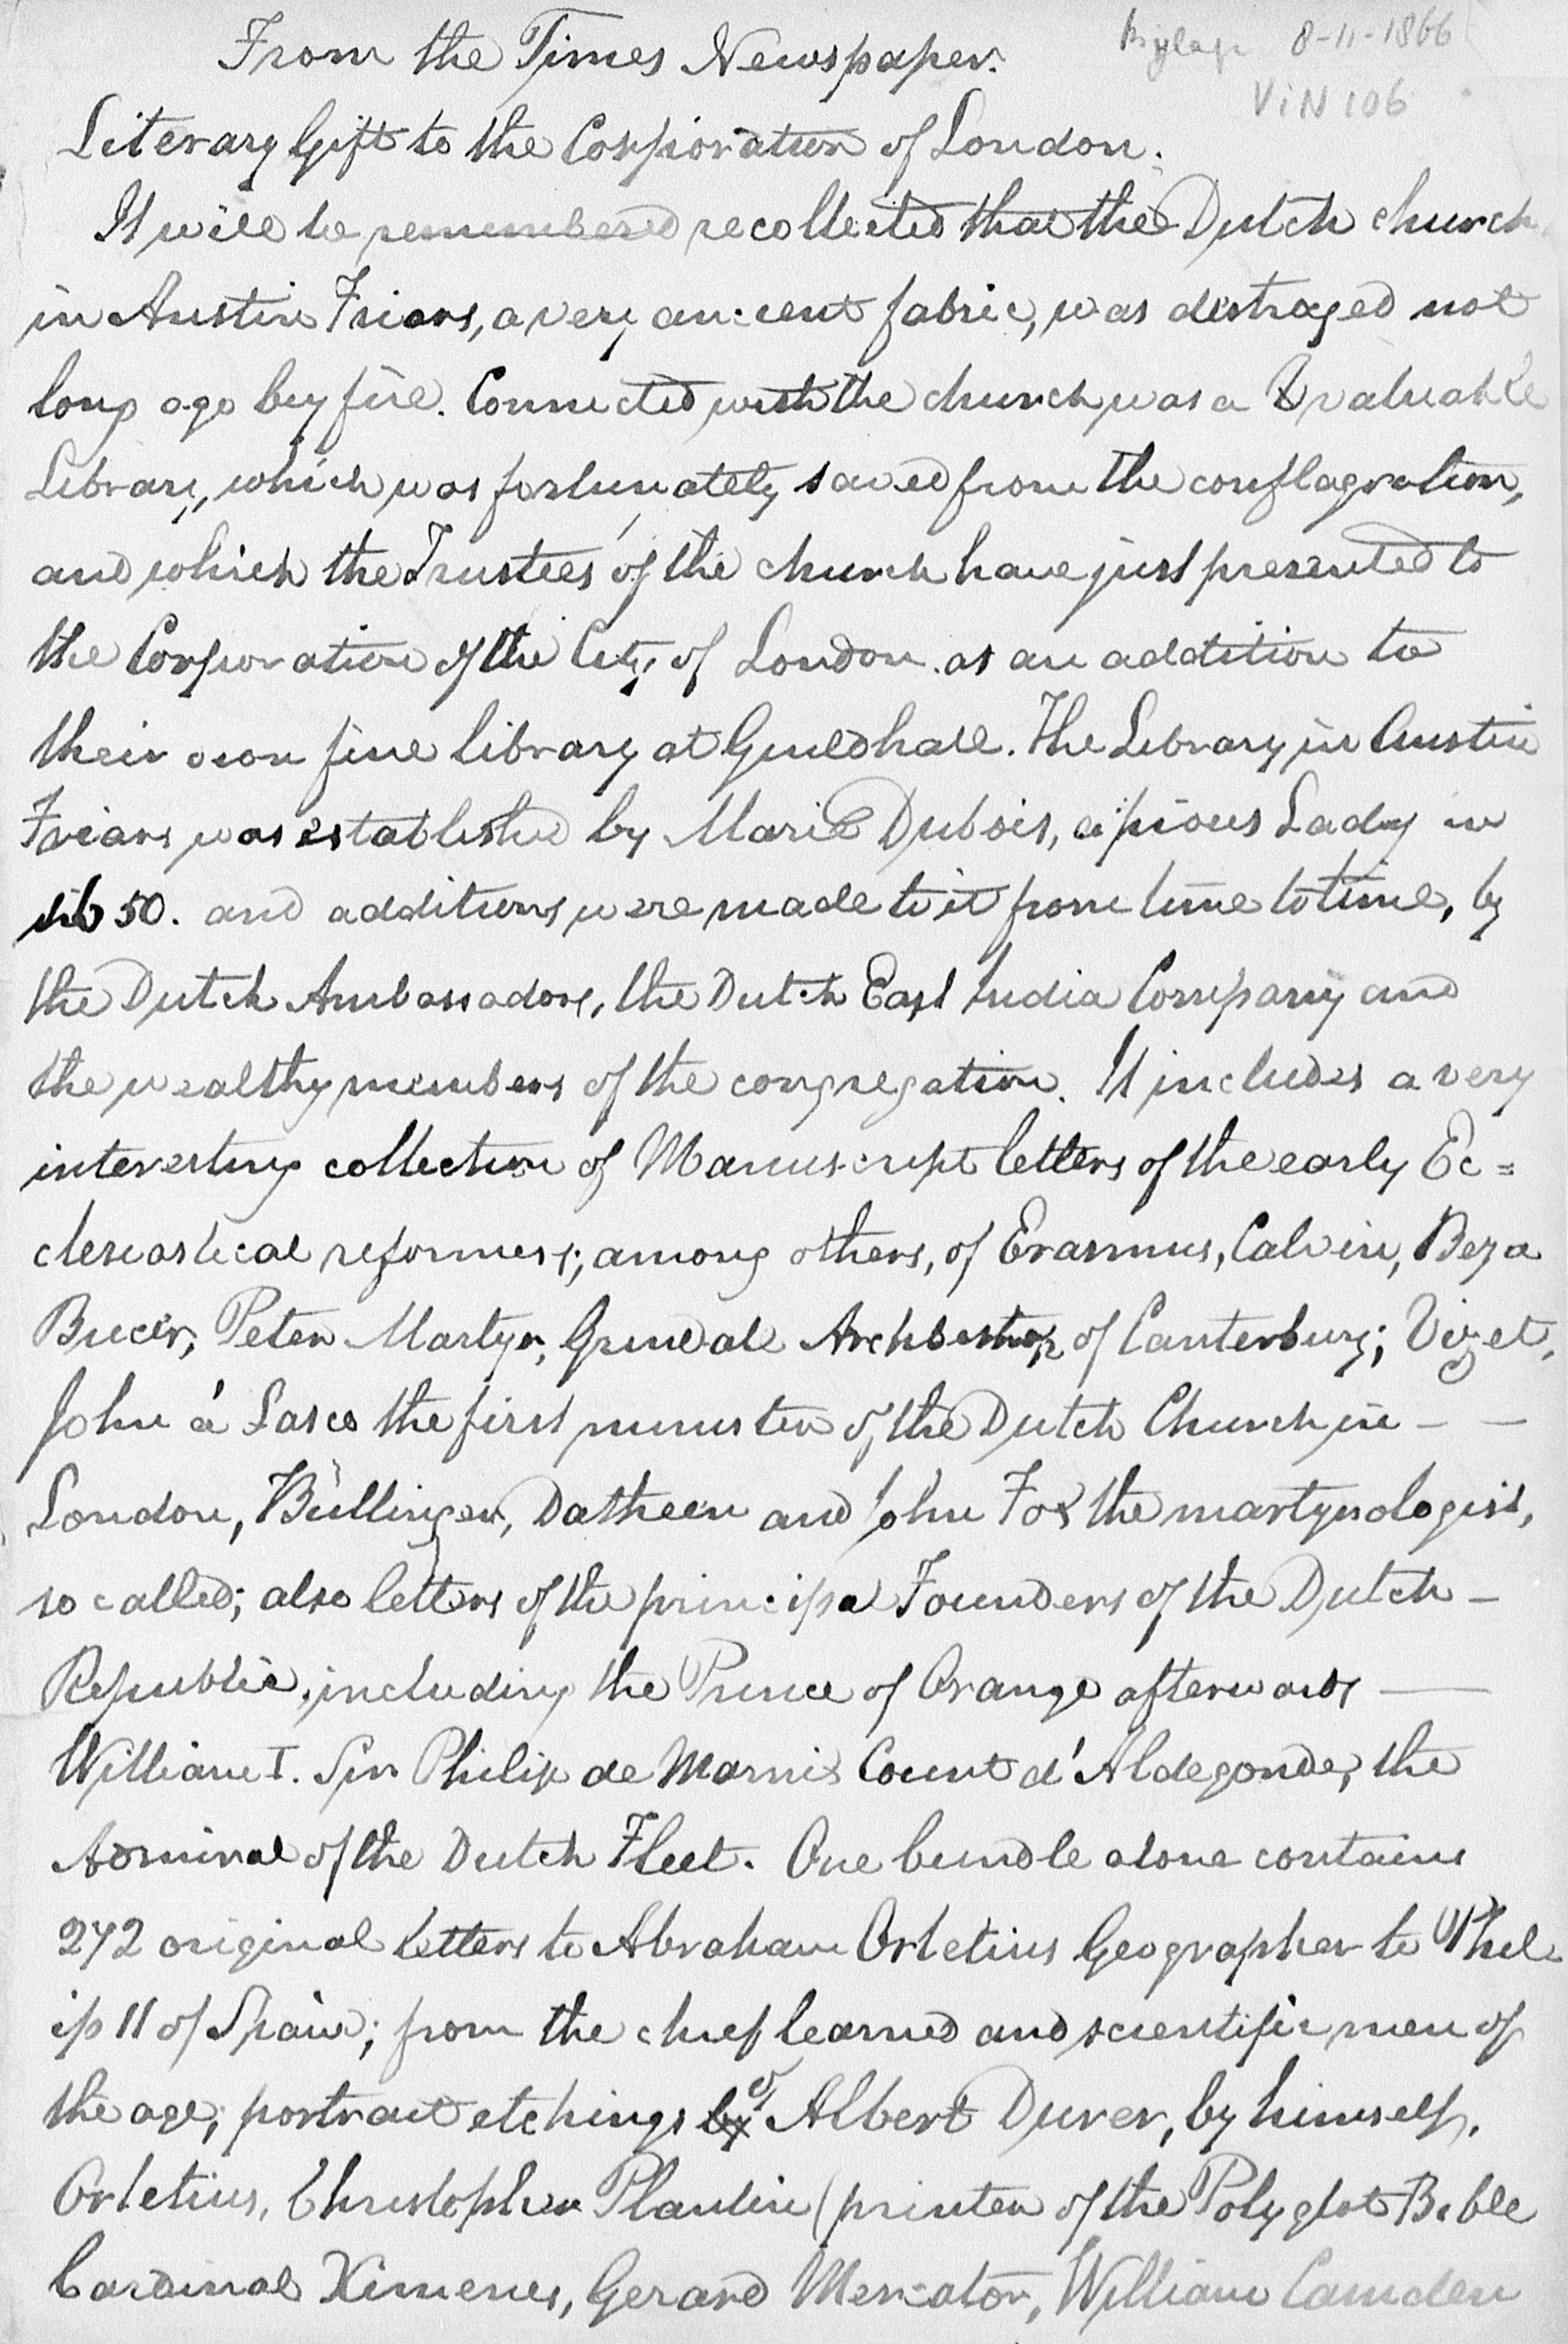 From the Times Newspaper.
Bylage 8-11-1866
ViN 106
Literary Gift to the Corporation of London.
It will be remembered recollected that the Dutch church
in Austin Friars, a very ancient fabric, was destroyed not
long ago by fire. Connected with the church was a valuable
Library, which was fortunately saved from the conflagration,
and which the Trustees of the church have just presented to
the Corporation of the City of London as an addition to
their own fine library at Guildhall. The Library in Austin
Friars was established by Marie Dubois, a pious Lady in
1650. and additions were made to it from time to time, by
the Dutch Ambassadors, the Dutch East India Company and
the wealthy members of the congregation. It includes a very
interesting collection of Manuscript letters of the early Ec=
clesiastical reformers; among others, of Erasmus, Calvin, Beza
Bucer, Peter Martyr, Grindall Archbishop of Canterbury; Viret,
John á Lasco the first minister of the Dutch Church in - -
London, Bullinger, Datheen and John Fox the martyrologist,
so called; also letters of the principal Founders of the Dutch -
Republic, including the Prince of Orange afterwards —
William I. Sir Philip de Marnix Count d'Aldegonde, the
Admiral of the Dutch Fleet. One bundle alone contains
272 original letters to Abraham Ortetius Geographer to Phil
ip II of Spain; from the chief learned and scientific men of
the age; portrait etchings by of Albert Durer, by himself,
Ortetius, Christopher Plantin (printer of the Polyglot Bible
Cardinal Ximenes, Gerard Mercator, William Camden